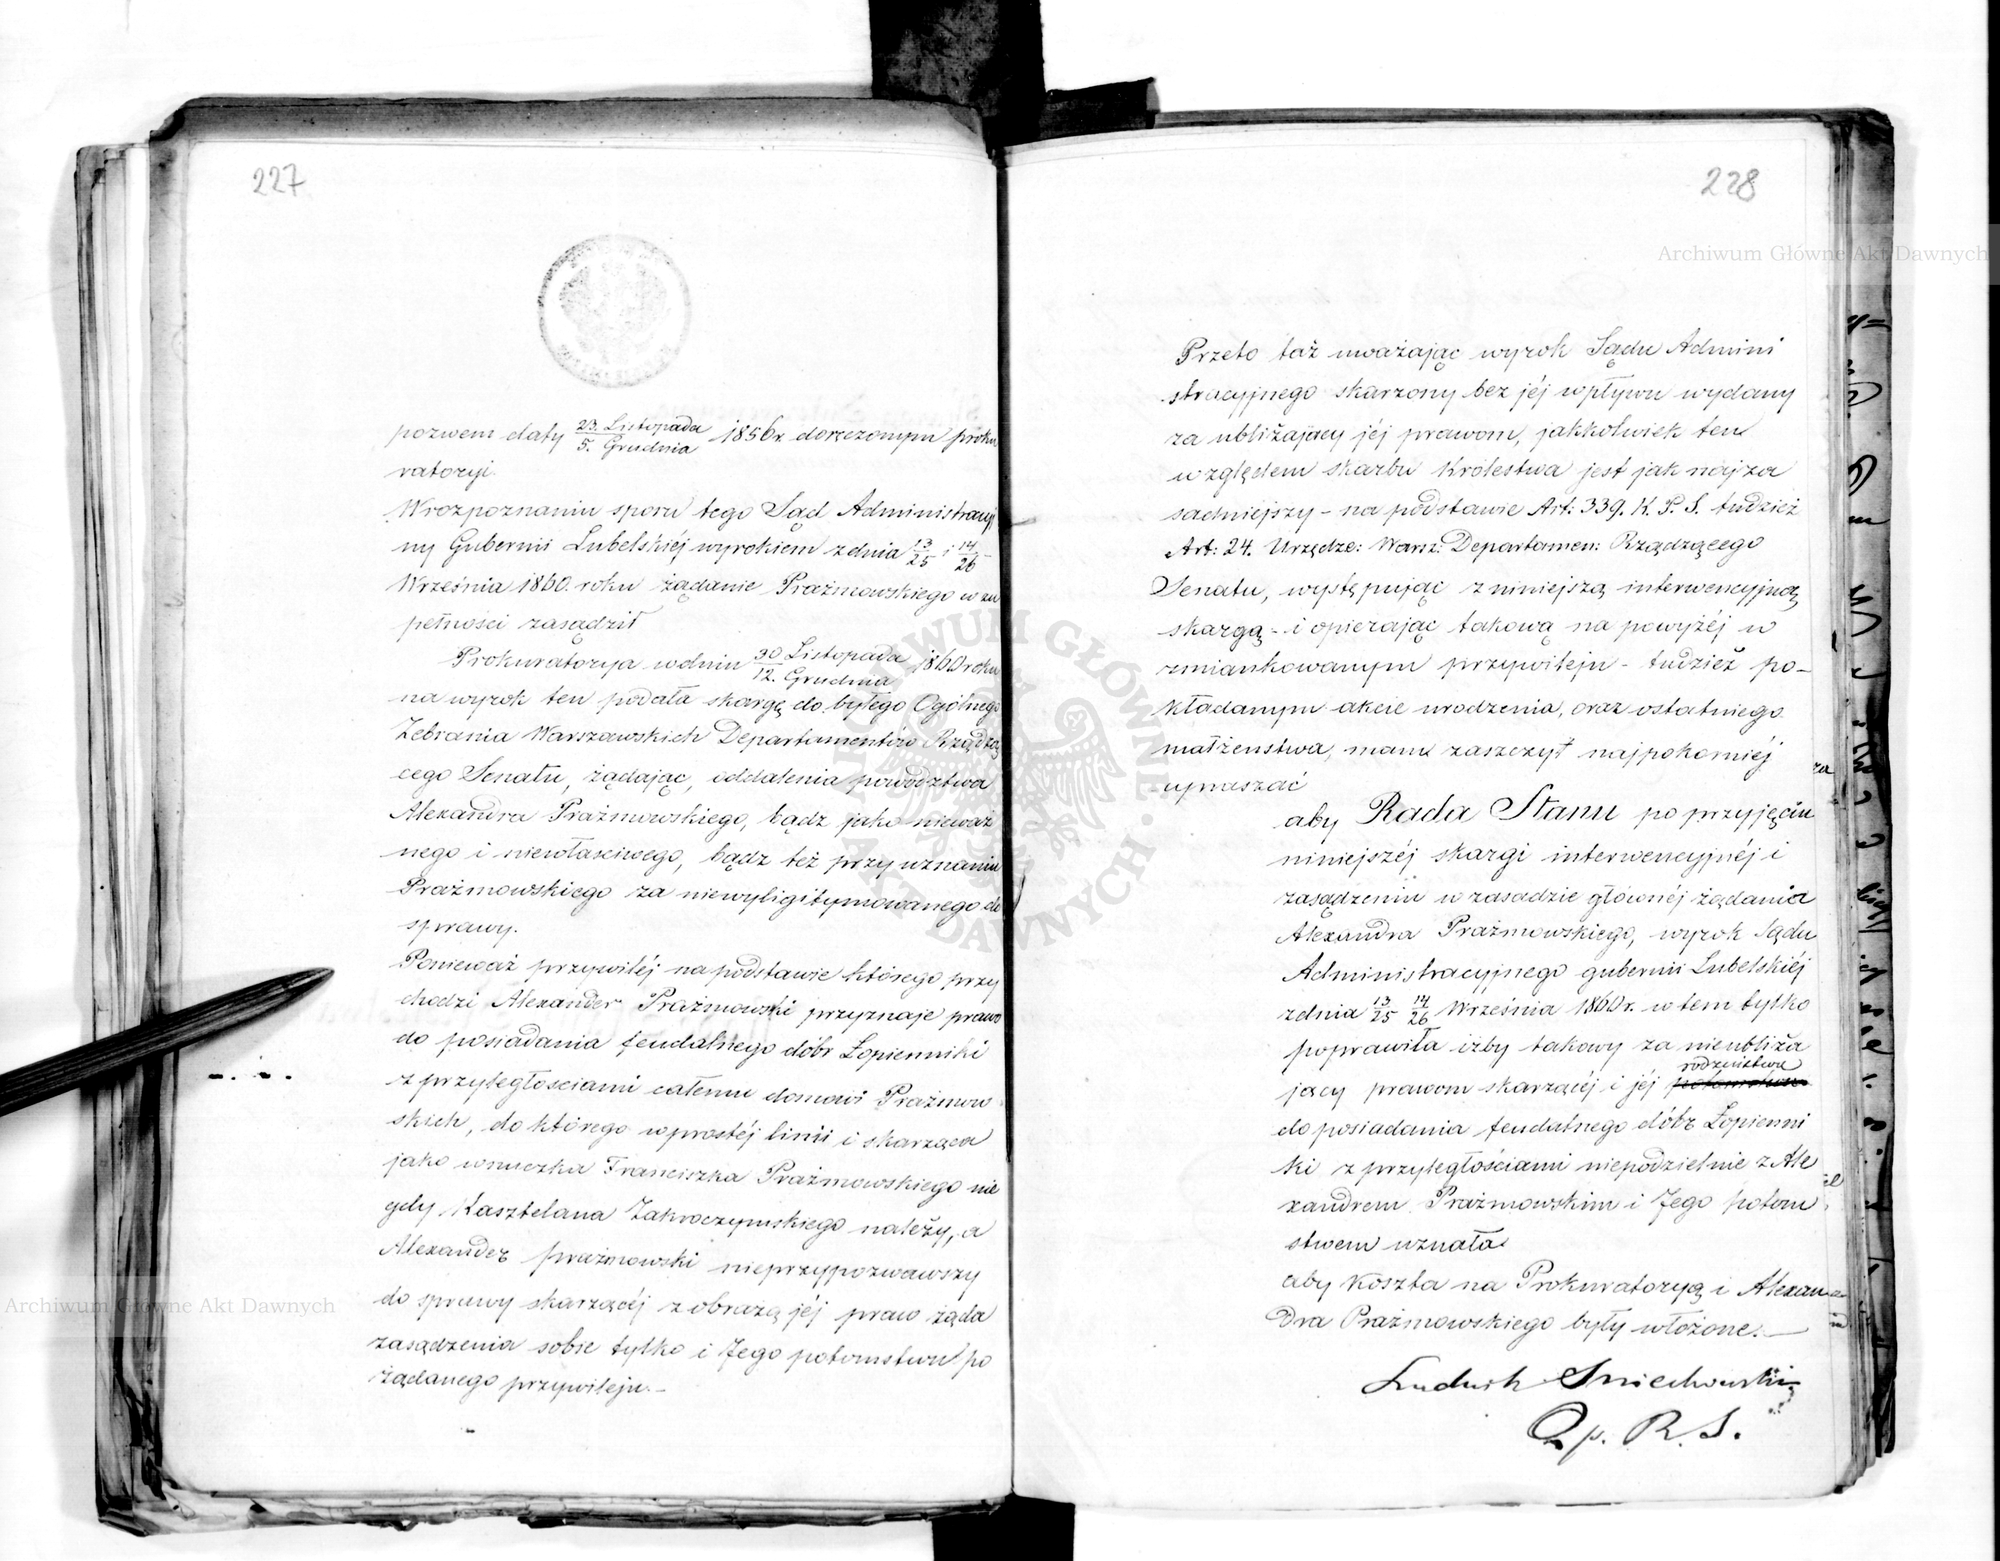 227
pozwem daty 23. Listopada / 5. Grudnia 1856 r. doręczonym proku
ratoryi.
W rozpoznaniu sporu tego Sąd Administracyj
ny Gubernii Lubelskiéj wyrokiem z dnia 13/25 i 14/26
Września 1860. roku żądanie Prażmowskiego w zu
pełności zasądził
Prokuratorya w dniu 30 Listopada / 12. Grudnia 1860 roku
na wyrok ten podała skargę do byłego Ogólnego
Zebrania Warszawskich Departamentów Rządzą
cego Senatu, żądając, oddalenia powództwa
Alexandra Prażmowskiego, bądz jako nieważ
nego i niewłasciwego, bądz też przy uznaniu
Prażmowskiego za niewyligitymowanego do
sprawy.
Ponieważ przywiléj na podstawie którego przy
chodzi Alexander Prażmowski przyznaje prawo
do posiadania feudalnego dóbr Łopienniki
z przyległosciami całemu domowi Prażmow
skich, do którego w prostéj linii i skarżąca
jako wnuczka Franciszka Prażmowskiego nie
gdy Kasztelana Zakroczymskiego należy, a
Alexander Prażmowski nieprzypozwawszy
do sprawy skarżącéj z obrazą jéj praw żąda
zasądzenia sobie tylko i Jego potomstwu po
żądanego przywileju.—
228
Przeto taż uważając wyrok Sądu Admini
stracyjnego skarżony bez jéj wpływu wydany
za ubliżający jéj prawom, jakkolwiek ten
względem skarbu Królestwa jest jak najza
sadniejszy - na podstawie Art: 339. K. P. S. tudzież
Art: 24. Urządze: Warsz: Departamen: Rządzącego
Senatu, występując z niniejszą interwencyjną
skargą - i opierając takową na powyżéj w
zmiankowanym przywileju - tudzież po-
kładanym akcie urodzenia, oraz ostatniego
małżenstwa, mam zaszczyt najpokorniéj
upraszać
aby Rada Stanu po przyjęciu
niniejszéj skargi interwencyjnéj i
zasądzeniu w zasadzie głównéj żądania
Alexandra Prażmowskiego, wyrok Sądu
Administracyjnego gubernii Lubelskiéj
z dnia 13/25 14/26 Września 1860 r. w tem tylko
poprawiła iżby takowy za nieubliża
jący prawom skarżącéj i jéj rodzeństwa
do posiadania feudalnego dóbr Łopienni
ki z przyległościami niepodzielnie z Ale
xandrem Prażmowskim i Jego potom
stwem uznała
aby koszta na Prokuratoryą i Alexan
dra Prażmowskiego były włożone.—
Ludwik
O. p. R. S.
Archiwum Główne Akt Dawnych
Archiwum Główne Akt Dawnych
ARCHIWUM GŁÓWNE AKT DAWNYCH